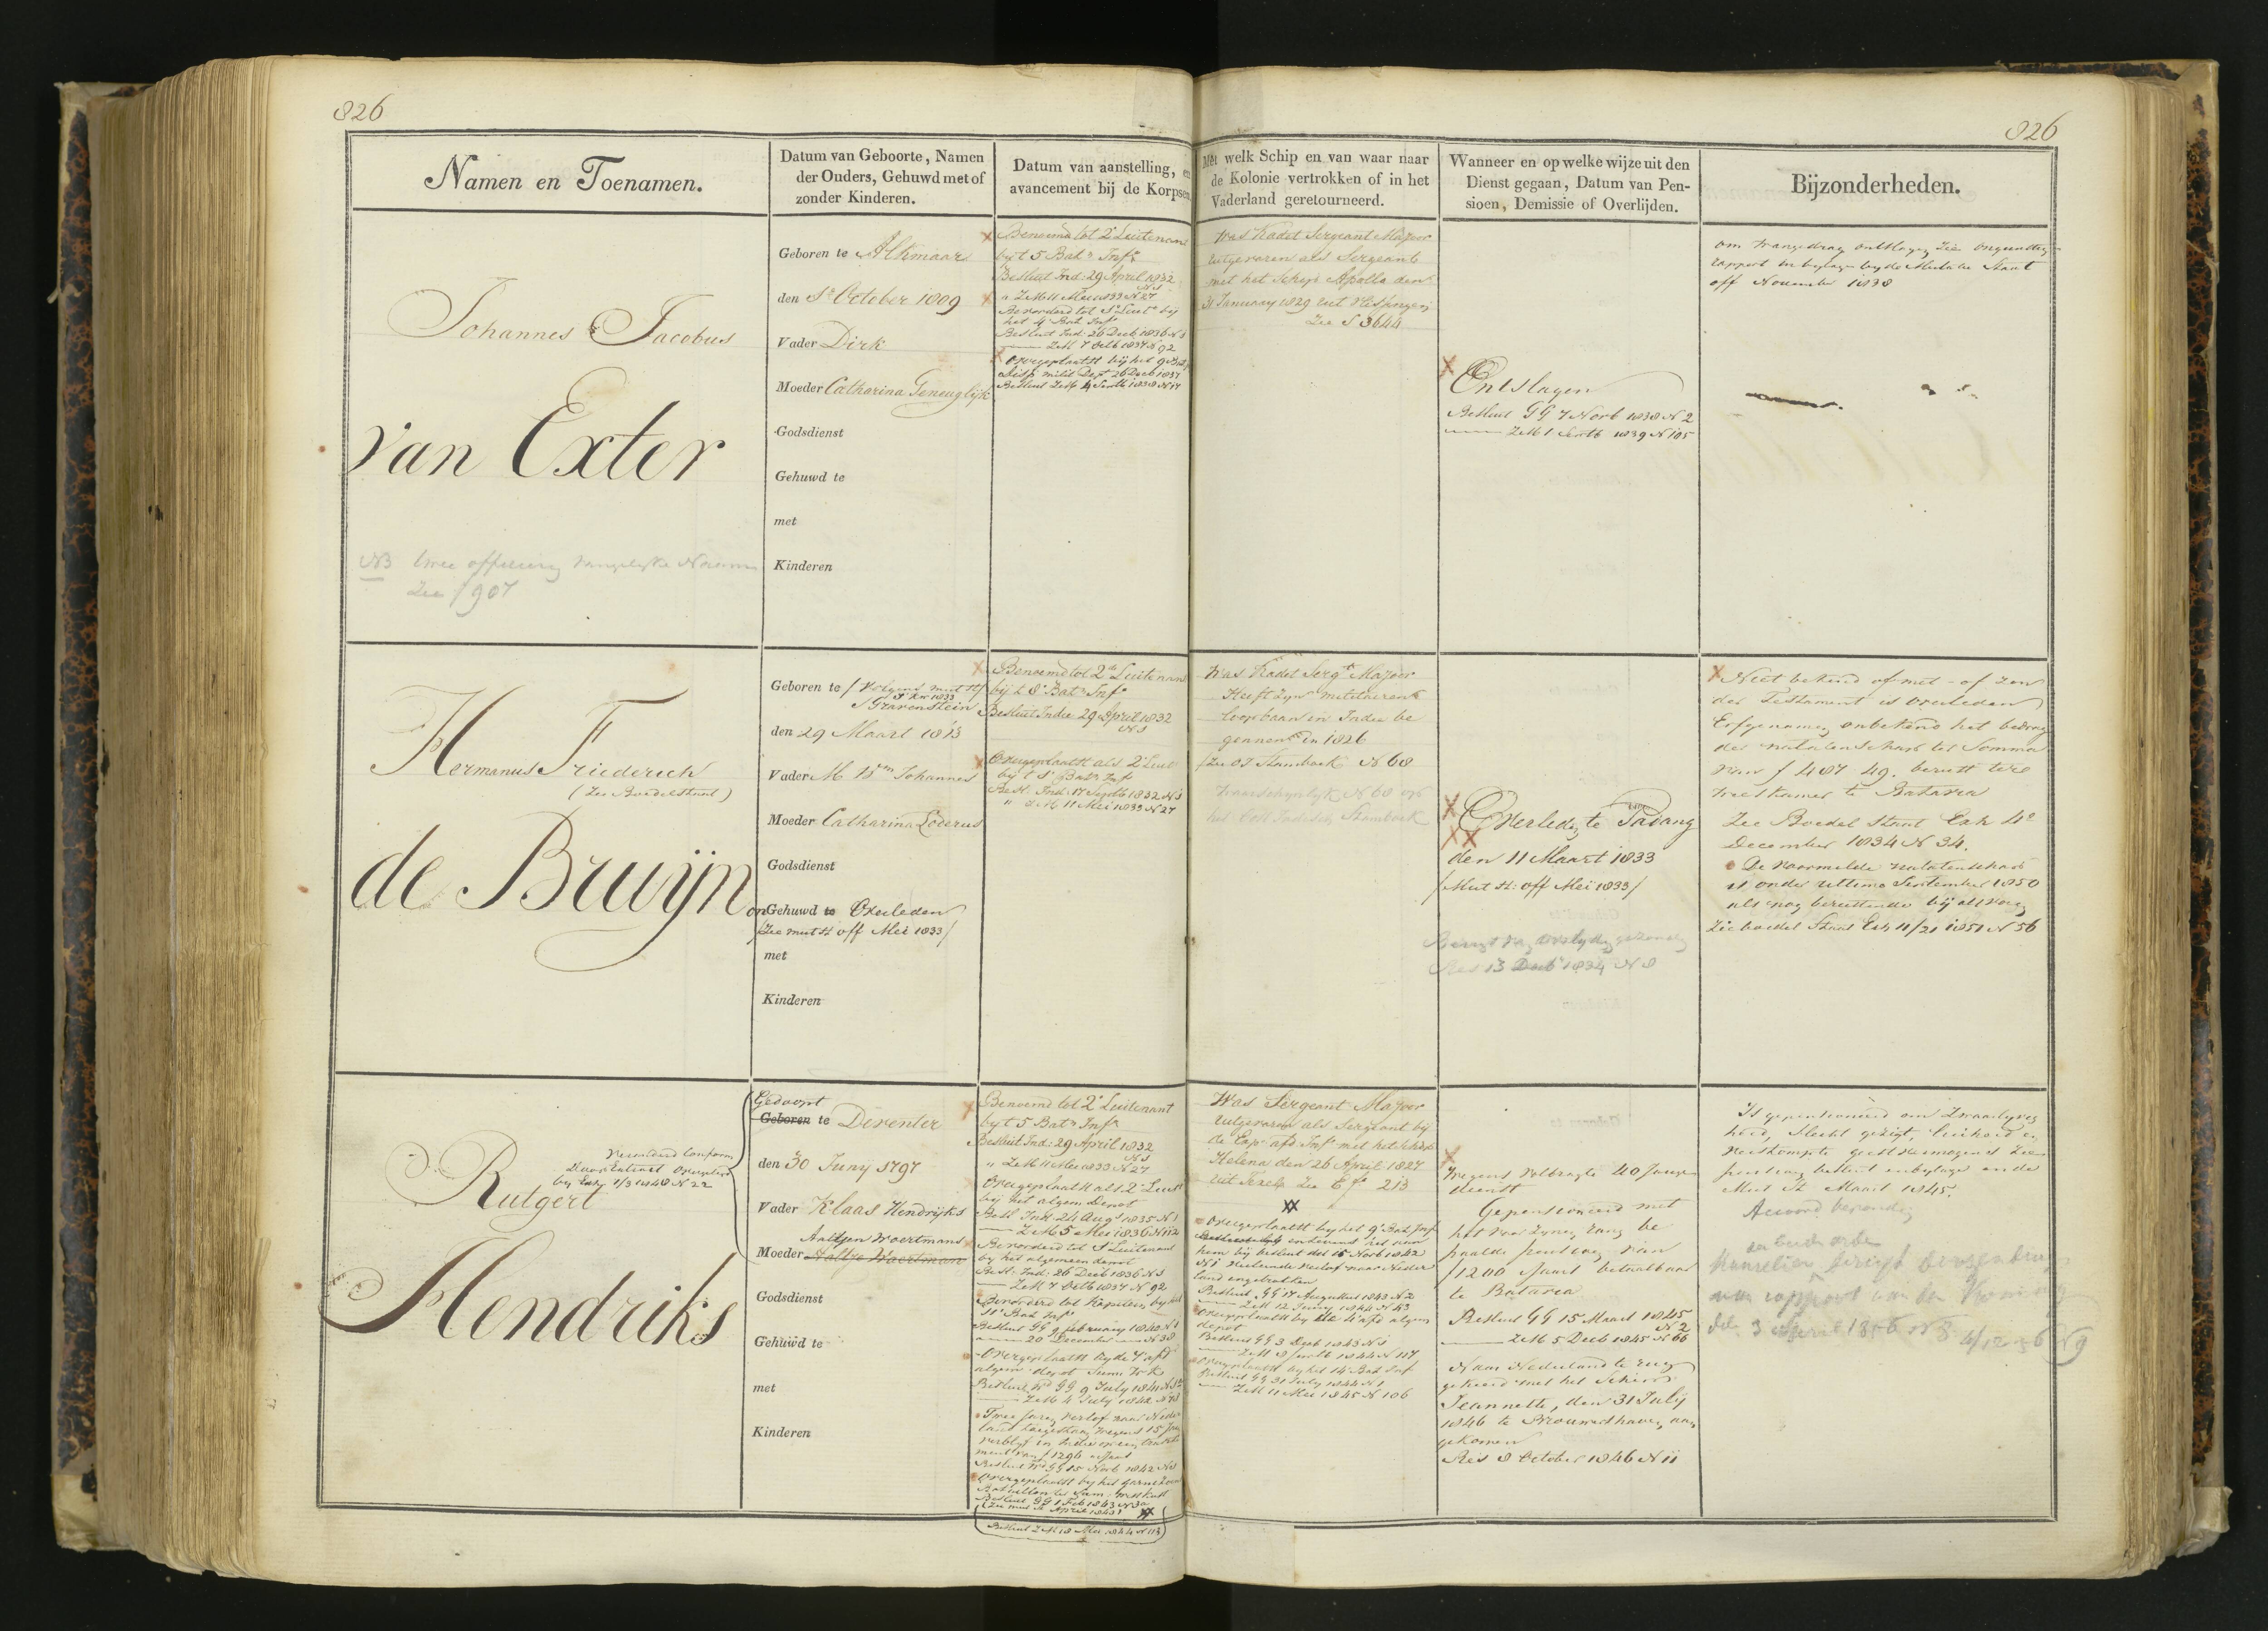 826
826
Namen en Toenamen.
Datum van Geboorte, Namen
der Ouders, Gehuwd met of
zonder Kinderen.
Datum van aanstelling, en
avancement bij de Korpsen
Met welk Schip en van waar naar
de Kolonie vertrokken of in het
Vaderland geretourneerd.
Wanneer en op welke wijze uit den
Dienst gegaan, Datum van Pen-
sioen, Demissie of Overlijden.
Bijzonderheden.
Johannes Jacobus
van Exter
NB twee officieren
Zie f 907
Geboren te Alkmaar
den 1e October 1809
Vader Dirk
Moeder Catharina Geneuglijk
Godsdienst
Gehuwd te
met
Kinderen
Benoemd tot 2e Luitenant
bij t 5 Bat. Inf.
Besluit Ind: 29 April 1832
N 1
" ZeM 11 Mei 1833 N 27
Bevorderd tot 1e Luit. bij
het 4 Bat Inf
Besluit Ind: 26 Decb 1836 N 1
ZeM 7 Octb 1837 N 92
Overgeplaatst bij het 9 Bat
Disp. milit Dept 26 Decb 1837
Besluit ZeM 4 Septb 1838 N 17
Was Kadet Sergeant Majoor
uitgevaren als Sergeant
met het Schip Apollo den
31 January 1829 uit Vlissingen
Zie S 3644
Ontslagen
Besluit GG 7 Novb 1838 N 2
ZeM 1 Septb 1839 N 105
om wangedrag ontslagen Zie ongunstig
rapport in bijlage bij de Mutatie Staat
off November 1838
Hermanus Friederich
(Zie Boedelstaat)
de Bruijn
Geboren te /Volgens mut St/
1833
S Gravenstein
den 29 Maart 1813
Vader M Wm Johannes
Moeder Catharina Loderus
Godsdienst
onGehuwd te Overleden
/Zie mut St off Mei 1833/
met
Kinderen
Benoemd tot 2de Luitenant
bij t 8e Bat. Inf.
Besluit Indie 29 April 1832
N 1
Overgeplaatst als 2e Luit
bij t 1e Bat. Inf
Besl. Ind: 17 Septb 1832 N 1
" ZeM 11 Mei 1833 N 27
Was Kadet Sergt Majoor
Heeft zyn militairen
loopbaan in Indie be
gonnen in 1826
/Zie OI Stamboek N 68
Waarschynlyk N 68 op
het Oost Indisch Stamboek
Overleden te Padang
den 11 Maart 1833
/Mut St: off Mei 1833/
Res 13 Decb 1834 N 8
Niet bekend of met - of zon
der Testament is overleden
Erfgenamen onbekend het bedrag
der nalatenschap ter Somma
van f 487.49. berust ter
weeskamer te Batavia
Zie Boedel Staat Exh 4e
December 1834 N 34.
De voormelde nalatenschap
is onder ultimo September 1850
als nog berustende bij
Zie boedel Staat Exh 11/21 1851 N 56
Rutgert
Veranderd conform
Doop Extract overgelegd
bij Exh 7/3 1848 N 22
Hendriks
Gedoopt
Geboren te Deventer
den 30 Juny 1797
Vader Klaas Hendrijks
Aaltjen Woertmans
Moeder Aaltje Woertman
Godsdienst
Gehuwd te
met
Kinderen
Benoemd tot 2e Luitenant
by t 5 Bat. Inf.
Besluit Ind: 29 April 1832
N 1
" ZeM 11 Mei 1833 N 27
Overgeplaatst als 2e Luit
bij het algem Depot
Besl Ind 24 Augs 1835 N 1
ZeM 5 Mei 1836 N 112
Bevorderd tot 1e Luitenant
bij het algemeen depot
Besl. Ind: 26 Decb 1836 N 1
ZeM 7 Octb 1837 N 92
Bevorderd tot Kapitein by het
11 Bat Inf
Besluit GG 9 February 1840 N 1
20 December N 38
Overgeplaatst by de 4 afd
algem depot
Besluit GG 9 July 1841 N 12
ZeM 4 July 1842 N 78
Twee jaren verlof naar Neder
land toegestaan wegens 15 jarig
verblyf in Indie op een trakte
ment van f 1296 sjaars
Besluit GG 15 Novb 1842 N 1
Overgeplaatst by het Garnizoen
Bataillon te Sum: westkust
Besluit GG 1 Feb 1843 N 3
(Zie mut St April 1843)
Besluit ZeM 18 Mei 1844 N 113
Was Sergeant Majoor
uitgevaren als Sergeant by
de Exp. afd. Inf met het schip
Helena den 26 April 1827
uit Texel Zie E f. 213
Overgeplaatst by het 9e Bat Inf
hem bij besluit dd 15 Novb 1842
N 1 verleende verlof naar Neder
land ingetrokken
Besluit GG 17 Augustus 1843 N 2
ZeM 12 Juny 1844 N 43
Overgeplaatst by de 4 afd algem
depot
Besluit GG 3 Decb 1843 N 1
ZeM 8 Septb 1844 N 117
Overgeplaatst by het 14 Bat Inf
Besluit GG 31 July 1844 N 1
ZeM 11 Mei 1845 N 106
Wegens volbragte 40 Jarige
dienst
Gepensioneerd met
het voor zynen rang be
paalde pensioen van
f 1200 sjaars betaalbaar
te Batavia
Besluit GG 15 Maart 1845
N 2
ZeM 5 Decb 1845 N 66
Naar Nederland te rug
gekeerd met het Schip
Jeannette, den 31 July
1846 te Brouwershaven aan
gekomen
Res 8 October 1846 N 11
Is gepensioneerd om Zwaarlyvig
heid, Slecht gezigt,
pensioen besluit en bylage en de
Mut St Maart 1845.
Accoord bevonden
dd. 3 April 1856 N 8 4/12 56 N 9